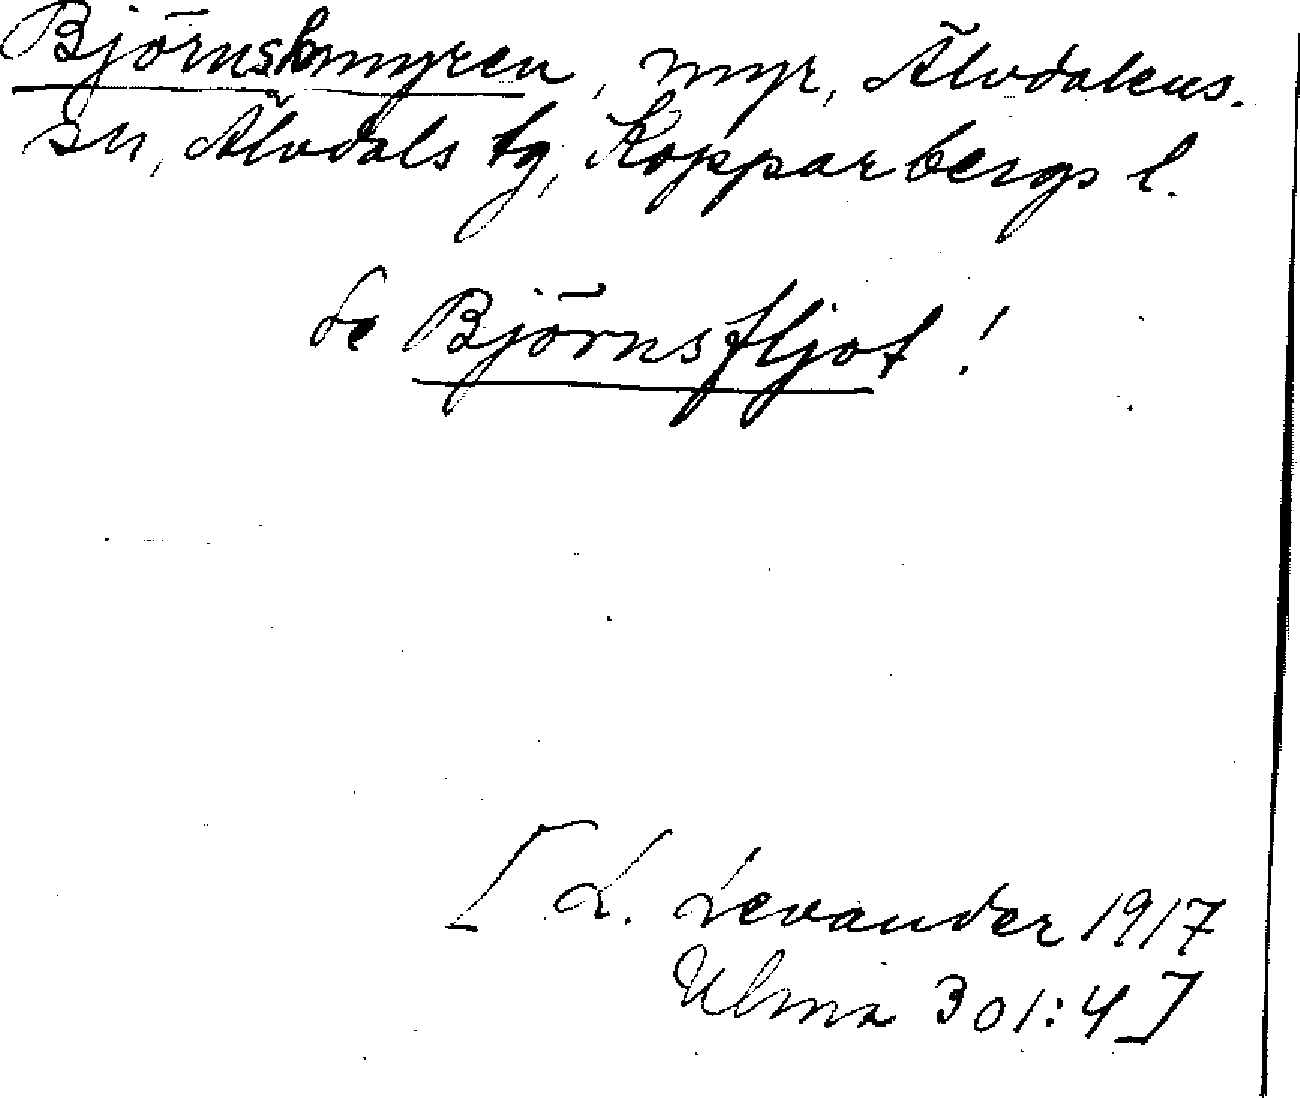 Björnslomyren, myr, Älvdalens.
sn, Älvdals tg, Kopparbergs l.
se Björnsfljot!
[L. Levander 1917
Ulma 301:4]